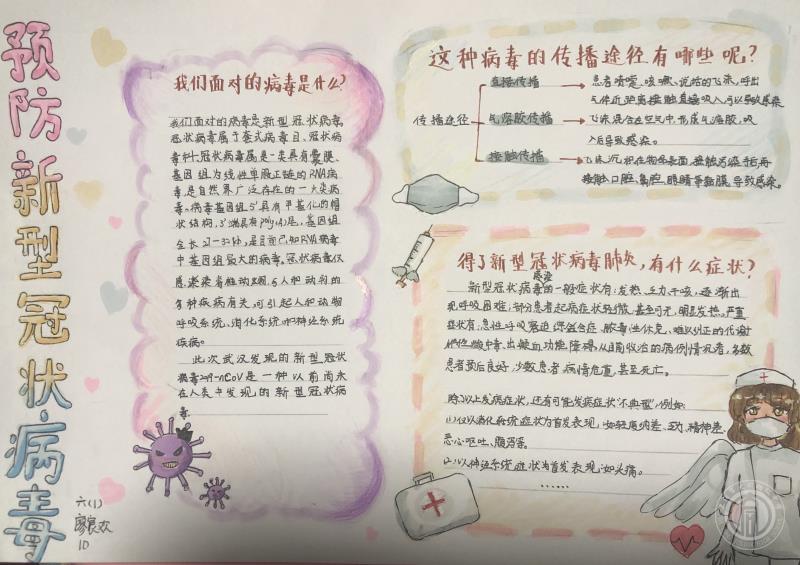 预防新型冠状病毒
我们面对的病毒是什么?
我们面对的病毒是新型冠状病毒。
冠状病毒属于套式病毒目、冠状病
毒科、冠状病毒属是一类具有囊膜、
基因组为线性单股正链的RNA病
毒,是自然界广泛存在的一大类病
毒。病毒基因组5'具有甲基化的帽
状结构,3'端具有poly(A)尾,基因组
全长27-32kb,是目前已知RNA病毒
中基因组最大的病毒。冠状病毒仅
感染脊椎动物,与人和动物的
多种疾病有关,可引起人和动物
呼吸系统、消化系统和神经系统
疾病。
此次武汉发现的新型冠状
病毒2019-nCoV是一种以前尚未
在人类中发现的新型冠状病
毒。
六(1)
廖 欢
10
这种病毒的传播途径有哪些呢?
传播途径
直接传播
患者喷嚏、咳嗽、说话的飞沫,呼出
气体近距离接触直接吸入,可以导致感染
气溶胶传播
飞沫混合在空气中,形成气溶胶,吸
入后导致感染。
接触传播
飞沫沉积在物品表面,接触污染手后,再
接触口腔、鼻腔、眼睛等黏膜,导致感染。
得了新型冠状病毒肺炎,有什么症状?
感染
新型冠状病毒的一般症状有:发热、乏力、干咳、逐渐出
现呼吸困难;部分患者起病症状轻微,甚至可无明显发热。严重
症状有:急性呼吸窘迫综合症、脓毒性休克、难以纠正的代谢
性酸中毒、出凝血功能障碍。从目前收治的病例情况看,多数
患者预后良好,少数患者病情危重,甚至死亡。
除了以上发病症状,还有可能发病症状“不典型”,例如:
(1)仅以消化系统症状为首发表现:如轻度纳差、乏力、精神差、
恶心呕吐、腹泻等。
(2)以神经系统症状为首发表现:如头痛。
……